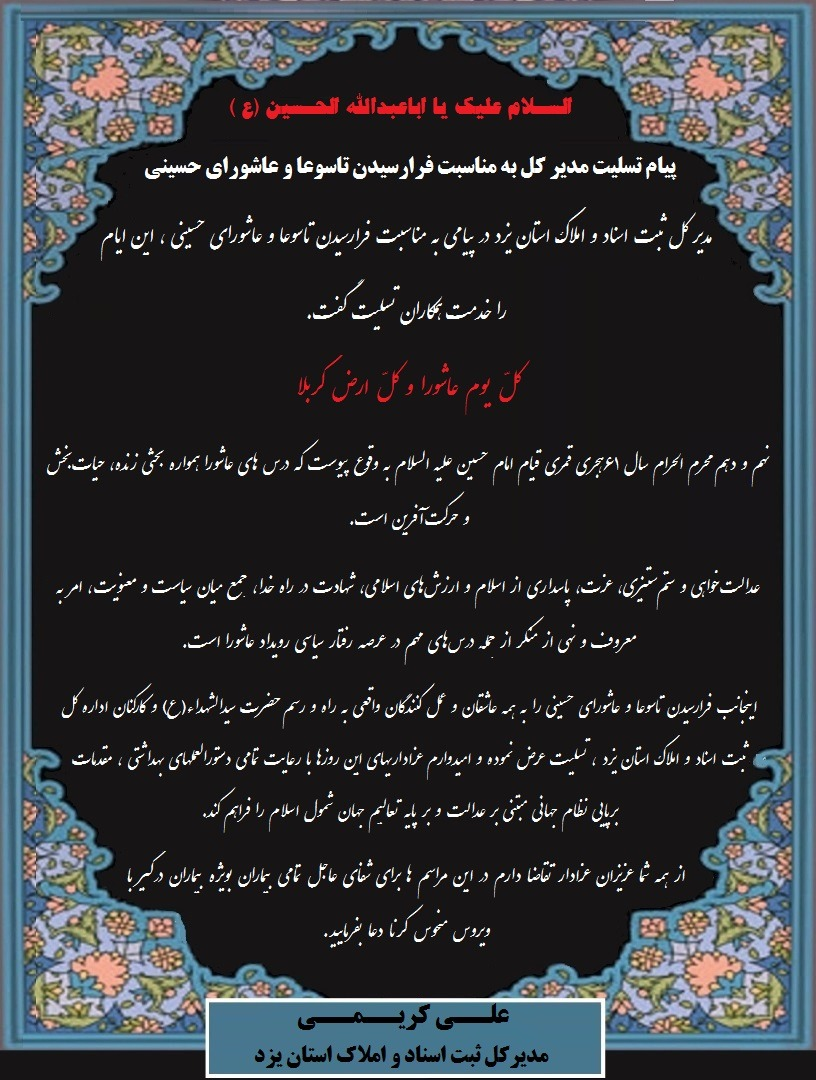 السلام علیک یا اباعبدالله الحسین (ع )
پیام تسلیت مدیر کل به مناسبت فرارسیدن تاسوعا و عاشورای حسینی
مدیر کل ثبت اسناد و املاک استان یزد در پیامی به مناسبت فرارسیدن تاسوعا و عاشورای حسینی ، این ایام
را خدمت همکاران تسلیت گفت.
کلّ یوم عاشورا و کلّ ارض کربلا
نهم و دهم محرم الحرام سال ۶۱هجری قمری قیام امام حسین علیه السلام به وقوع پیوست که درس های عاشورا همواره بحثی زنده، حیات‌بخش
و حرکت‌آفرین است.
عدالت‌خواهی و ستم‌ستیزی، عزت، پاسداری از اسلام و ارزش‌های اسلامی، شهادت در راه خدا، جمع میان سیاست و معنویت، امر به
معروف و نهی از منکر از جمله درس‌های مهم در عرصه رفتار سیاسی رویداد عاشورا است.
اینجانب فرارسیدن تاسوعا و عاشورای حسینی را به همه عاشقان و عمل کنندگان واقعی به راه و رسم حضرت سیدالشهداء(ع) و کارکنان اداره کل
ثبت اسناد و املاک استان یزد ، تسلیت عرض نموده و امیدوارم عزاداریهای این روزها با رعایت تمامی دستورالعملهای بهداشتی ، مقدمات
برپایی نظام جهانی مبتنی بر عدالت و بر پایه تعالیم جهان شمول اسلام را فراهم کند.
از همه شما عزیزان عزادار تقاضا دارم در این مراسم ها برای شفای عاجل تمامی بیماران بویژه بیماران درگیر با
ویروس منحوس کرنا دعا بفرمایید.
علی کریمی
مدیرکل ثبت اسناد و املاک استان یزد